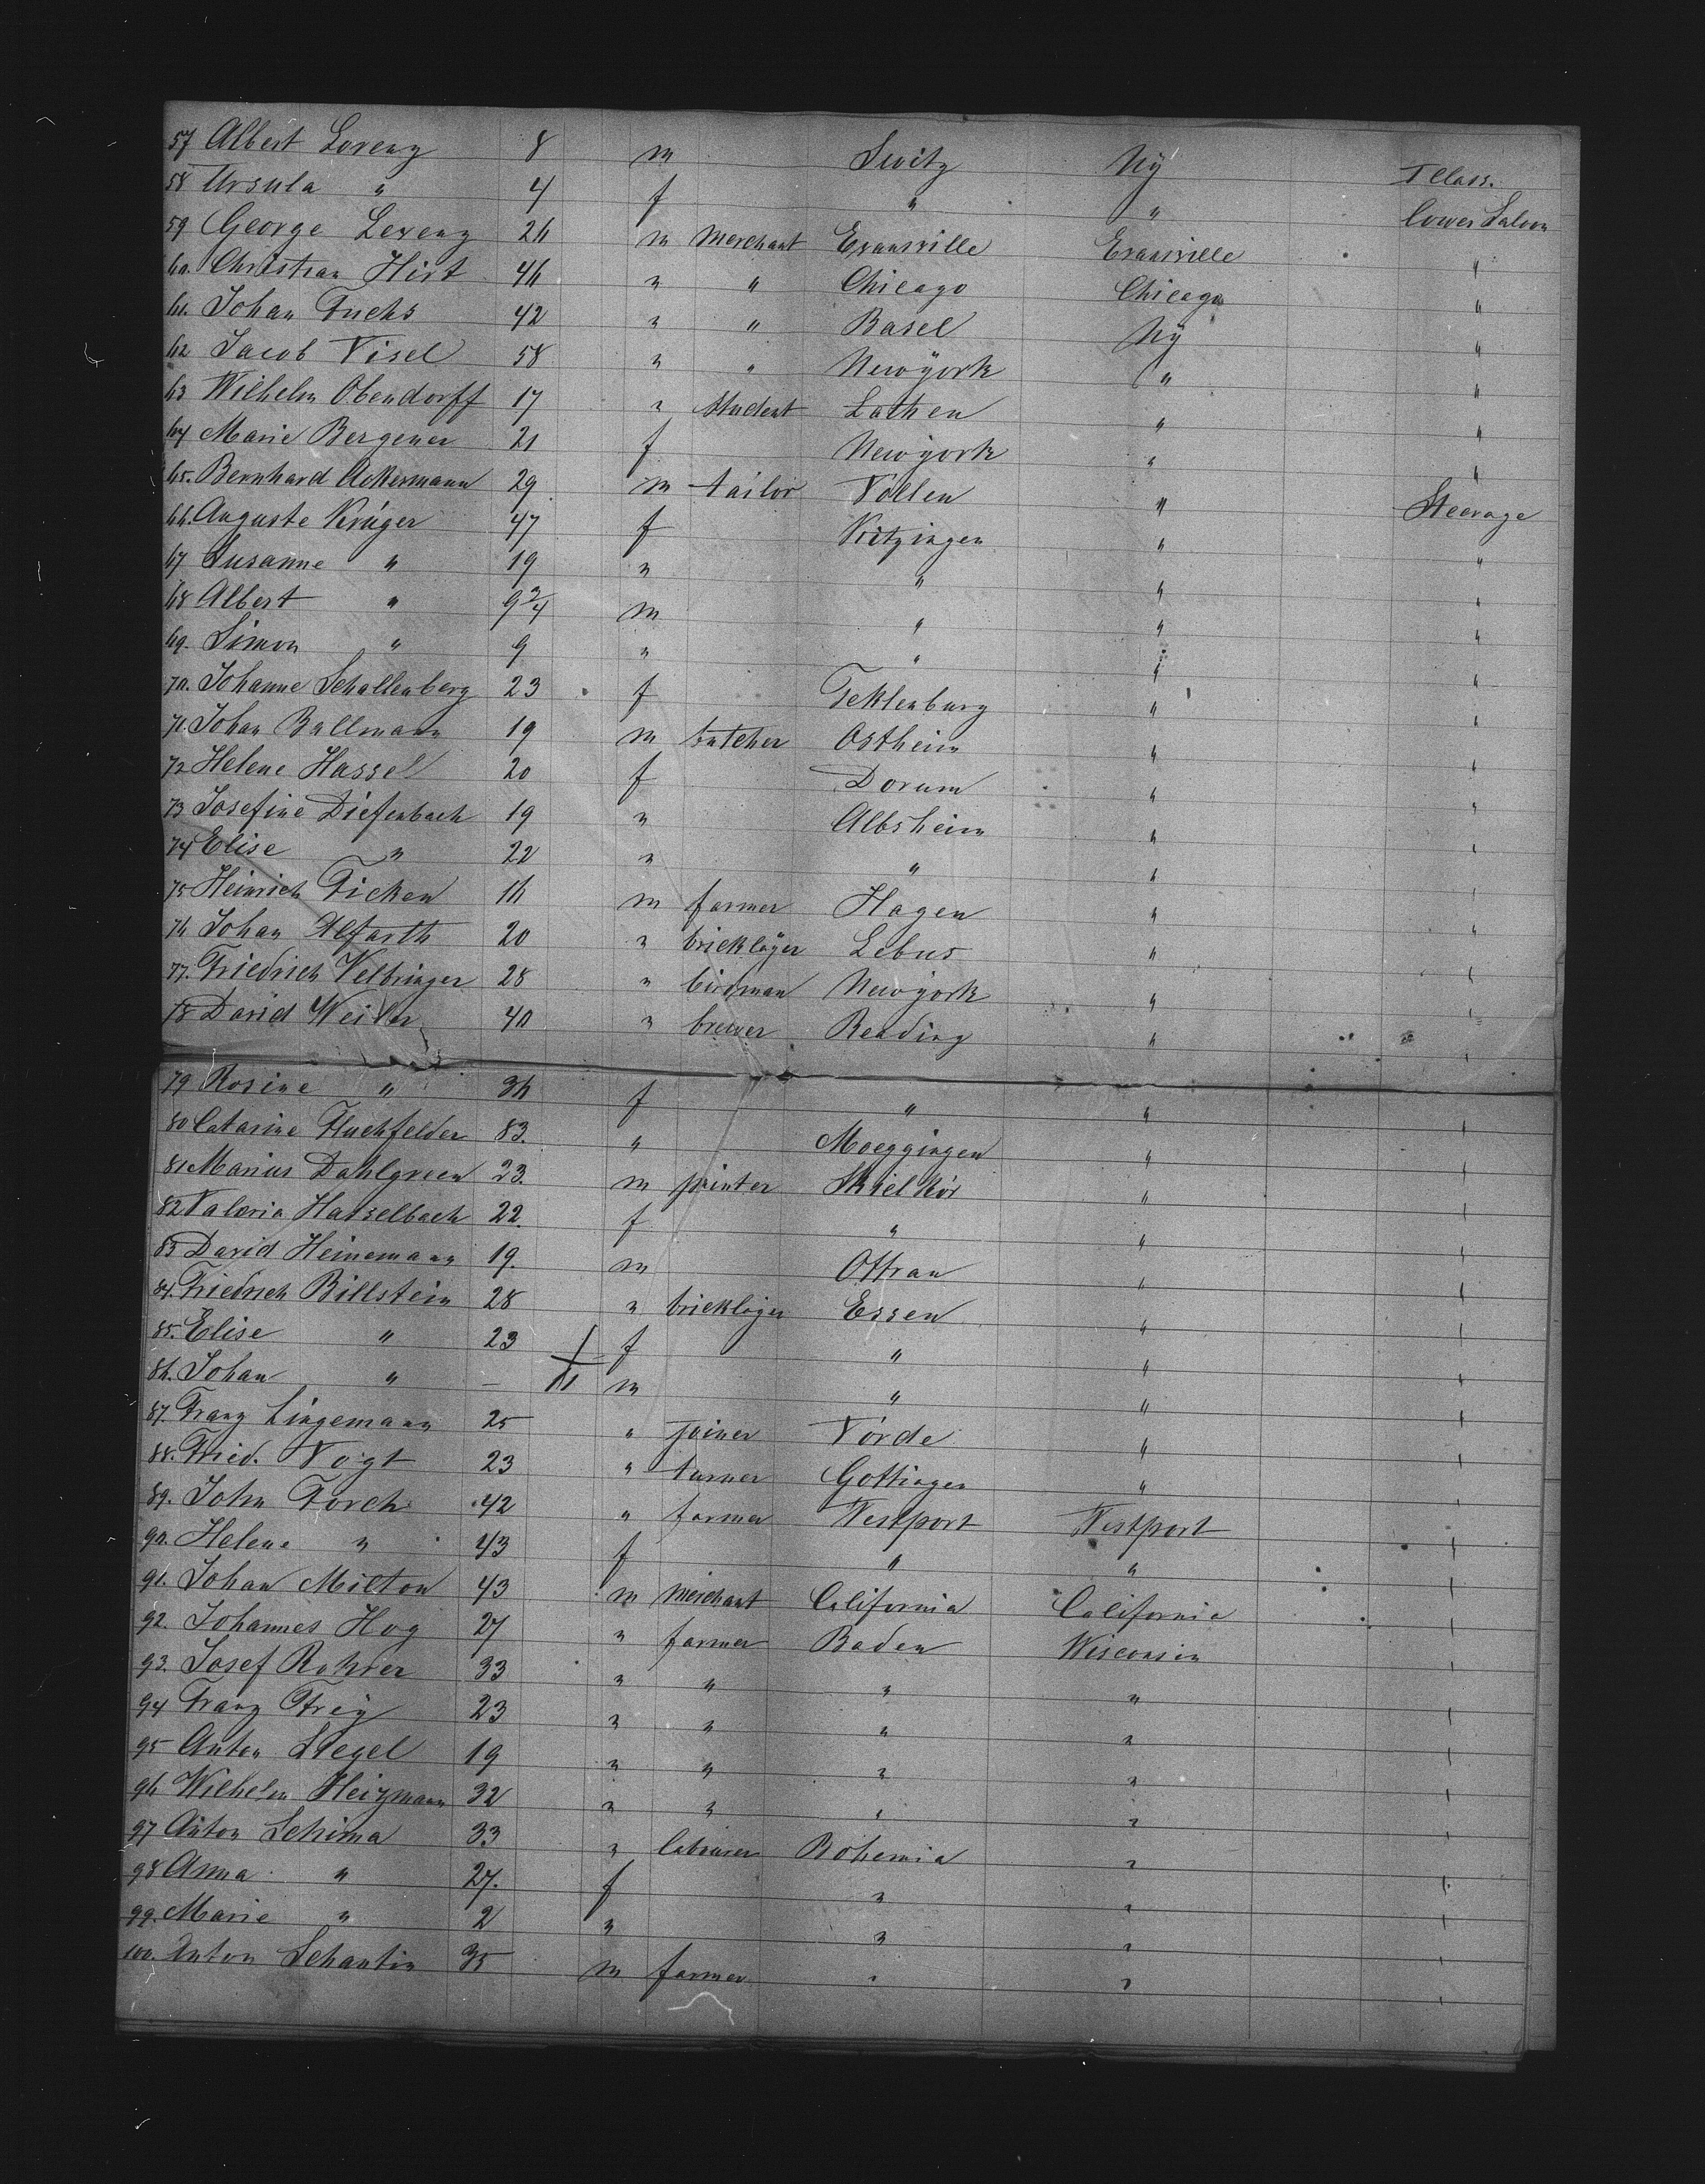 57 Albert Lorenz 8 m Switz Ny I Class.
58 Ursula " 4 f " " lower Saloon
59 George Lexenz 26 m merchant Evansville Evansville "
60. Christian Hirt 46 " " Chicago Chicago "
61. Johan Fuchs 42 " " Basel Ny "
62 Jacob Visel 58 " " Newyork " "
63 Wilhelm Obendorff 17 " student Lathen " "
64 Marie Bergener 21 f Newyork " "
65. Bernhard Ackermann 29 m tailor Vollen " Steerage
66. Auguste Krüger 47 f Kitzingen " "
67 Susanne " 19 " " " "
68 Albert " 9 3/4 m " " "
69. Simon " 9 " " " "
70. Johanne Schallenberg 23 f Teklenburg " "
71. Johan Ballmann 19 m butcher Ostheim " "
72 Helene Hassel 20 f Dorum " "
73 Josefine Diefenbach 19 " Albsheim " "
74 Elise " 22 " " " "
75 Heinrich Ficken 16 m farmer Hagen " "
76 Johan Alfarth 20 " bricklayer Lebus " "
77. Friedrich Velbringer 28 " Newyork " "
78 David Weiler 40 " brewer Reading " "
79 Rosine " 36 f " " "
80 Catarine Fluchfelder 83. " Moeggingen " "
81 Marius Dahlgreen 23. m printer Skielkör " "
82 Valeria Hasselbach 22. f " " "
83 David Heinemann 19. m Ottrau " "
84. Friedrich Billstein 28 " bricklayer Essen " "
85. Elise " 23 f " " "
86. Johan " — 11 m " " "
87. Franz Lingemann 25 " joiner Vörde " "
88. Fried. Vogt 23 " turner Gottingen " "
89. John Torch 42 " farmer Westport Westport "
90. Helene " 43 f " " "
91. Johan Milton 43 m merchant California California "
92. Johannes Hog 27 " farmer Baden Wisconsin "
93. Josef Rohrer 33 " " " " "
94 Franz Frey 23 " " " " "
95 Anton Siegel 19 " " " " "
96 Wilhelm Heizmann 32 " " " " "
97 Anton Schima 33 " labourer Bohemia " "
98 Anna " 27. f " " "
99. Marie " 2 " " " "
100. Anton Schantin 35 m farmer " " "